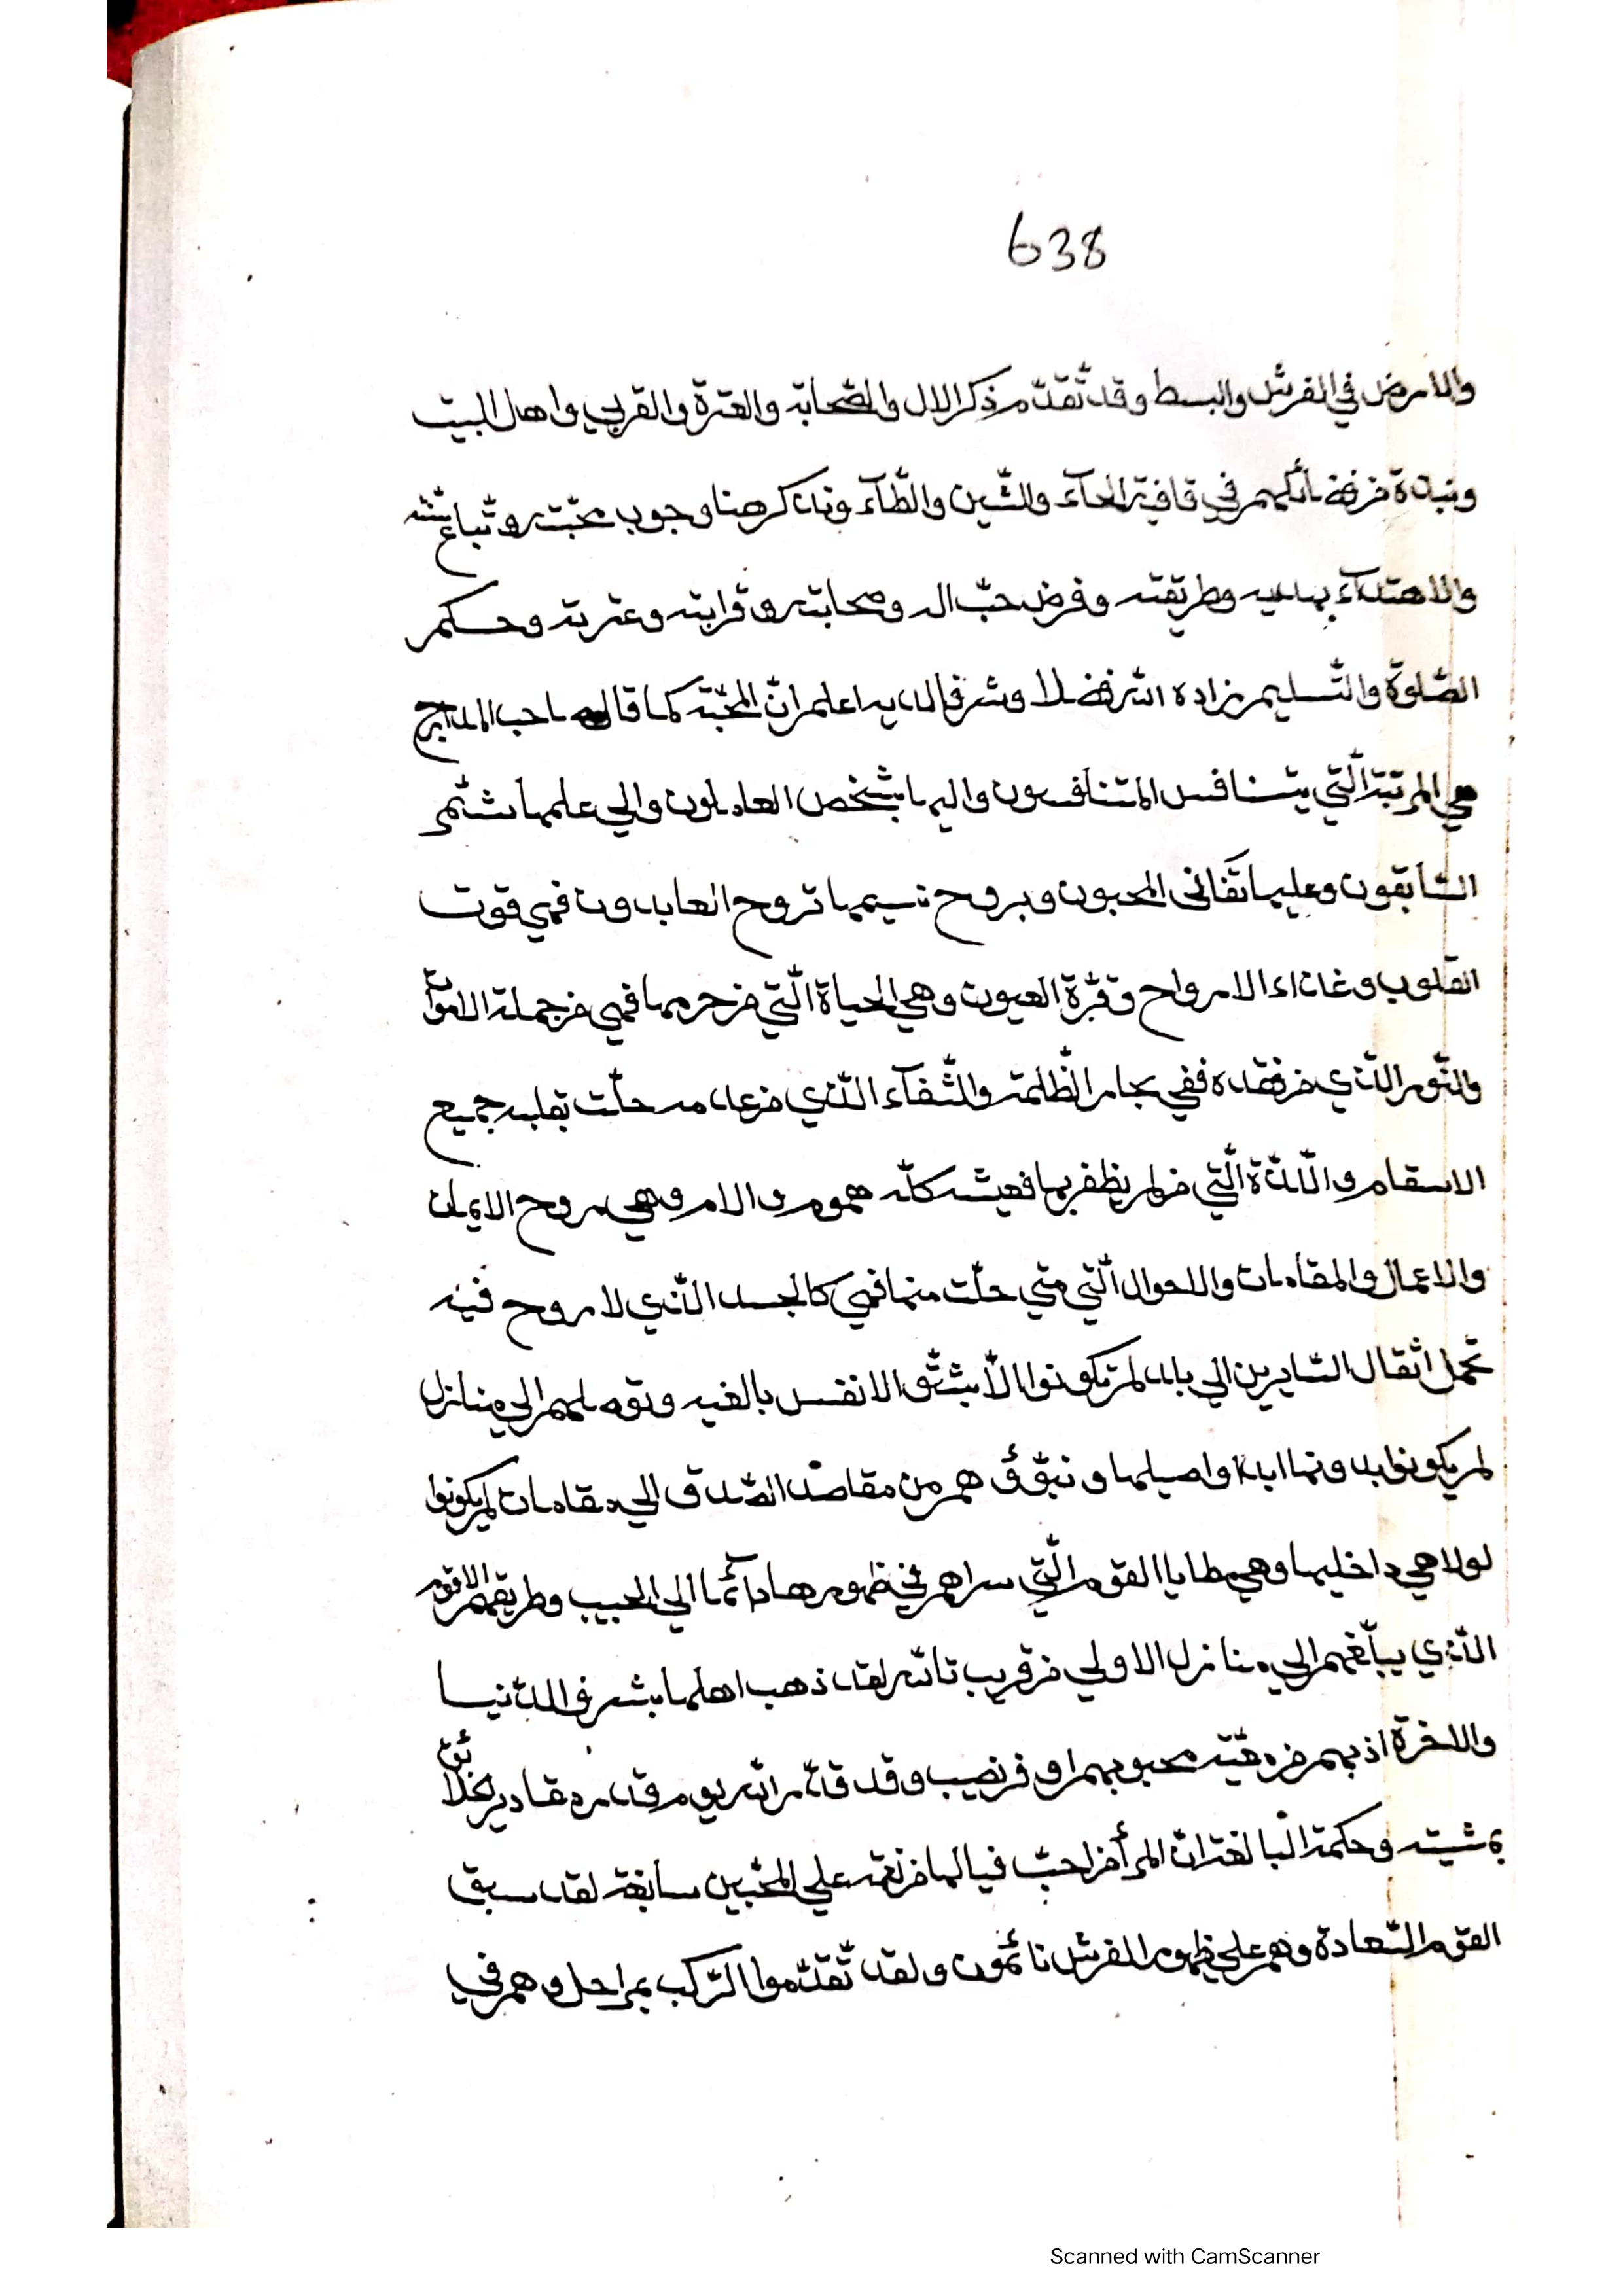 638
والارض في الفرش والبسط وقد تّقدّم ذكر الال والصّحابة والعترة والقربي واهل البيت
ونبذة من فضائلهم في قافية الحآء والشّين والطّآء ونذكر هنا وجوب محبّته واتّباع سنّته
والاهتدآء بهديه وطريقته وفرض حبّ اله وصحابته وقرابته وعترته وحكم
الصّلوة والتّسليم زاده اللّه فضلا وشرفا لديه اعلم انّ المحبّة كما قاله صاحب المدارج
هي المرتبة الّتي يتنافس المتنافسون واليها يشخص العاملون والي علمها شمّر
السّابقون وعليها تفاني المحبون وبروح نسيمها تروح العابدون فهي قوت
القلوب وغذاء الارواح وقرّة العيون وهي الحياة الّتي من حرمها فهي من جملة الاموات
والنّور الّذي من فقده ففي بحار الظّلمة والشّفآء الّذي من عدمه حلّت بقلبه جميع
الاسقام واللّذّة الّتي من لم يظفر بها فعيشه كلّه هموم والام وهي روح الايمان
والاعمال والمقامات والاحوال الّتي متي خلّت منها فهي كالجسد الّذي لا روح فيه
تحمل اثقال السّايرين الي بلد لم تكونوا الّا بشقّ الانفس بالغيه وتوصلهم الي منازل
لم يكونوا بدونها ابدا واصيلها وتبوّئهم من مقاصد الصّدق الي مقامات لم يكونوا
لولا هي داخليها وهي مطايا القوم الّتي سراهم في ظهورها دائما الي الحبيب وطريقهم الاقوم
الّذي يبلّغهم الي منازل الاولي من قريب تاللّه لقد ذهب اهلها بشرف الدّنيا
والاخرة اذ بهم من معيّة محبوبهم اوفر نصيب وقد قدّر اللّه يوم قدّر مقادير الخلائق
بمشيته وحكمته البالغة انّ المرأ مع من احبّ فيا لها من نعمة علي المحبّين سابغة لقد سبق
القوم السّعادة وهم علي ظهور الفرش نائمون ولقد تّقدّموا الرّكب بمراحل وهم في
Scanned with CamScanner